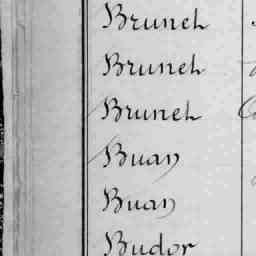 Brunel
Brunel
Brunel
Buan
Buan
Budor